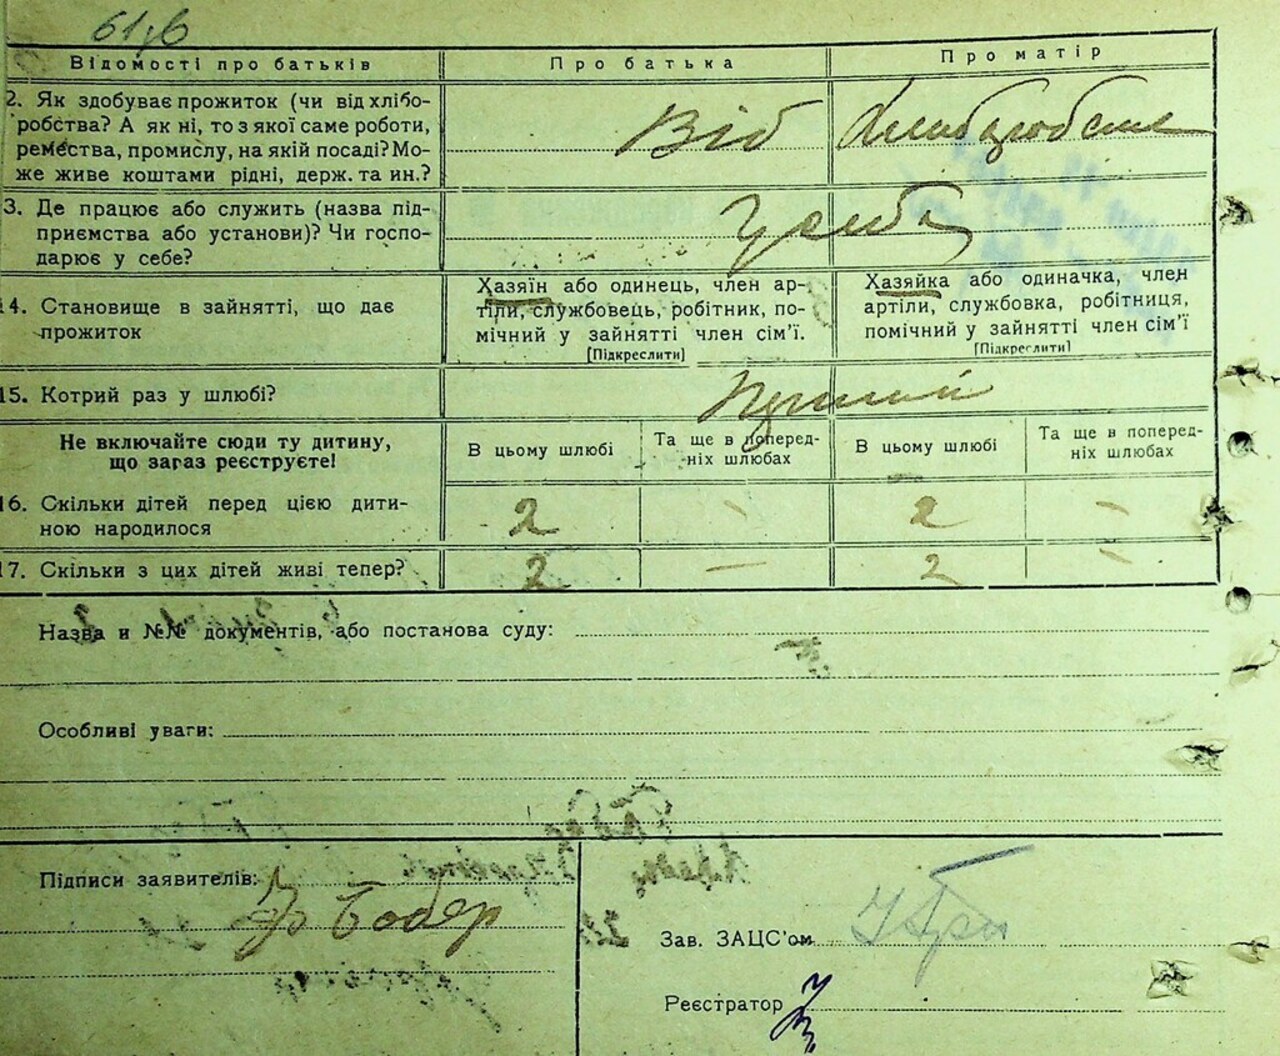 Відомості про батьків
Про батька
Про матір
2. Як здобуває прожиток (чи від хлібо-
робства? А як ні, то з якої саме роботи,
ремества, промислу, на якій посаді? Мо-
же живе коштами рідні, держ. та ин.?
Від
3. Де працює або служить (назва під-
приємства або установи)? Чи госпо-
дарює у себе?
У себе
14. Становище в зайнятті, що дає
прожиток
Хазяїн або одинець, член ар-
тіли, службовець, робітник, по-
мічний у зайнятті член сім'ї.
[Підкреслити]
Хазяйка або одиначка, член
артіли, службовка, робітниця,
помічний у зайнятті член сім'ї
[Підкреслити]
15. Котрий раз у шлюбі?
Не включайте сюди ту дитину,
що загаз реєструєте!
В цьому шлюбі
Та ще в поперед-
ніх шлюбах
В цьому шлюбі
Та ще в попере-
ніх шлюбах
16. Скільки дітей перед цією дити-
ною народилося
2
-
2
-
17. Скільки з цих дітей живі тепер?
2
-
2
-
Назва и №№ документів, або постанова суду:
Особливі уваги:
Підписи заявителів:
Бобер
Зав. ЗАЦС'ом
Реєстратор